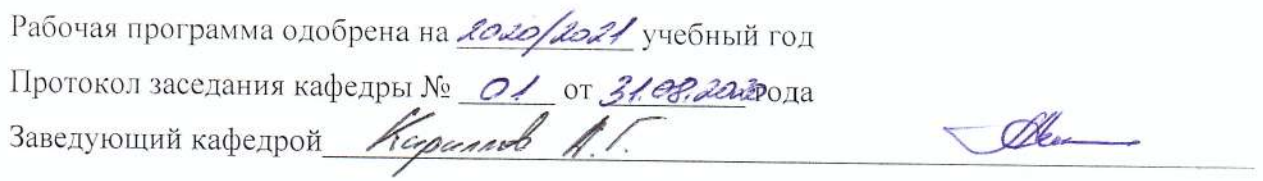 Рабочая программа одобрена на 2020/2021 учебный год
Протокол заседания кафедры № 01 от 31.08.2020года
Заведующий кафедрой Кириллов А.Г.